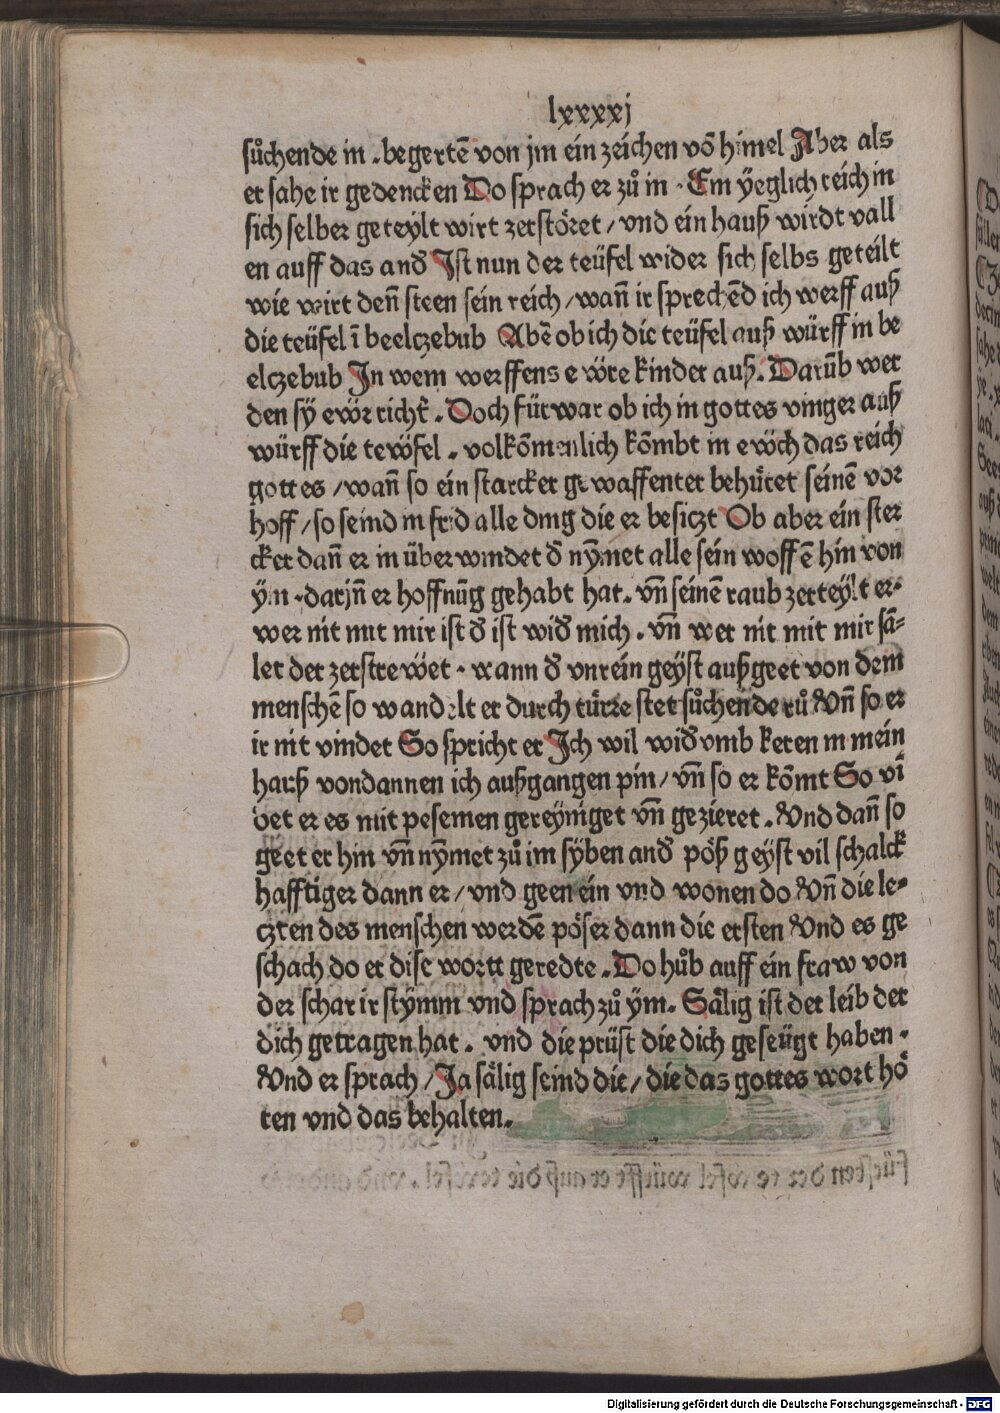 lxxxxj
sůchende in . begertē von jm ein zeichen vō himel Aber als
er sahe ir gedencken Do sprach er zů in . Ein ÿeglich reich in
sich selber geteylt wirt zerstöret / vnd ein hauß wirdt vall
en auff das andđ Ist nun der teüfel wider sich selbs geteilt
wie wirt deñ steen sein reich / wañ ir sprechēd ich werff auß
die teüfel ī beelczebub Abē ob ich die teüfel auß würff in be
elczebub In wem werffens ewre kinder auß. Darūb wer
den sÿ ewr richť . Doch fürwar ob ich in gottes vinger auß
würff die tewfel . volkōmenlich kōmbt in ewch das reich
gottes / wañ so ein starcker gewaffenter behütet seinē vor
hoff / so seind in frid alle ding die er besiczt Ob aber ein ster
cker dañ er in überwindet đ nÿmet alle sein woffē hin von
ÿm . darjñ er hoffnūg gehabt hat . vñ seinē raub zerteylt er.
wer nit mit mir ist đ ist wiđ mich . vñ wer nit mit mir sā=
let der zerstrewet . wann đ vnrein geyst außgeet von dem
menschē so wandelt er durch türre stet sůchende rů Vñ so er
ir nit vindet So spricht er Ich wil wiđvmb keren in mein
hauß vondannen ich außgangen pin / vñ so er kōmt So vī
det er es mit pesemen gereyniget vñ gezieret . Und dañ so
geet er hin vñ nÿmet zů im sÿben anđ pöß geyst vil schalck
hafftiger dann er / vnd geen ein vnd wonen do Vñ die le=
czten des menschen werdē pöser dann die ersten Und es ge
schach do er dise wortt geredte . Do hůb auff ein fraw von
der schar ir stymm vnd sprach zů ÿm. Sälig ist der leib der
dich getragen hat . vnd die prüst die dich geseügt haben .
Und er sprach / Ja sälig seind die / die das gottes wort hö
ren vnd das behalten.
Digitalisierung gefördert durch die Deutsche Forschungsgemeinschaft - DFG